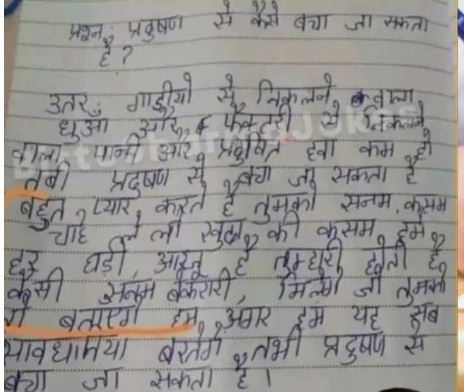 प्रश्न: प्रदुषण से कैसे बचा जा सकता
है ?
उतर: गाड़ीयो से निकलने वाला
धुआ और फैक्तरी से निकलने
वाला पानी और प्रदुषित हवा कम हो
तबी प्रदुषण से बचा जा सकता है
बहुत प्यार करते है तुमको सनम, कसम
चाहे ले लो खुदा की कसम, हमे
हर घड़ी, आरजू है तुम्हारी होती है
कैसी सनम बेकरारी, मिलोगे जो तुमको
तो बताएंगे हम, अगर हम यह सब
सावधानिया बरतेगे तभी प्रदुषण से
बचा जा सकता है।